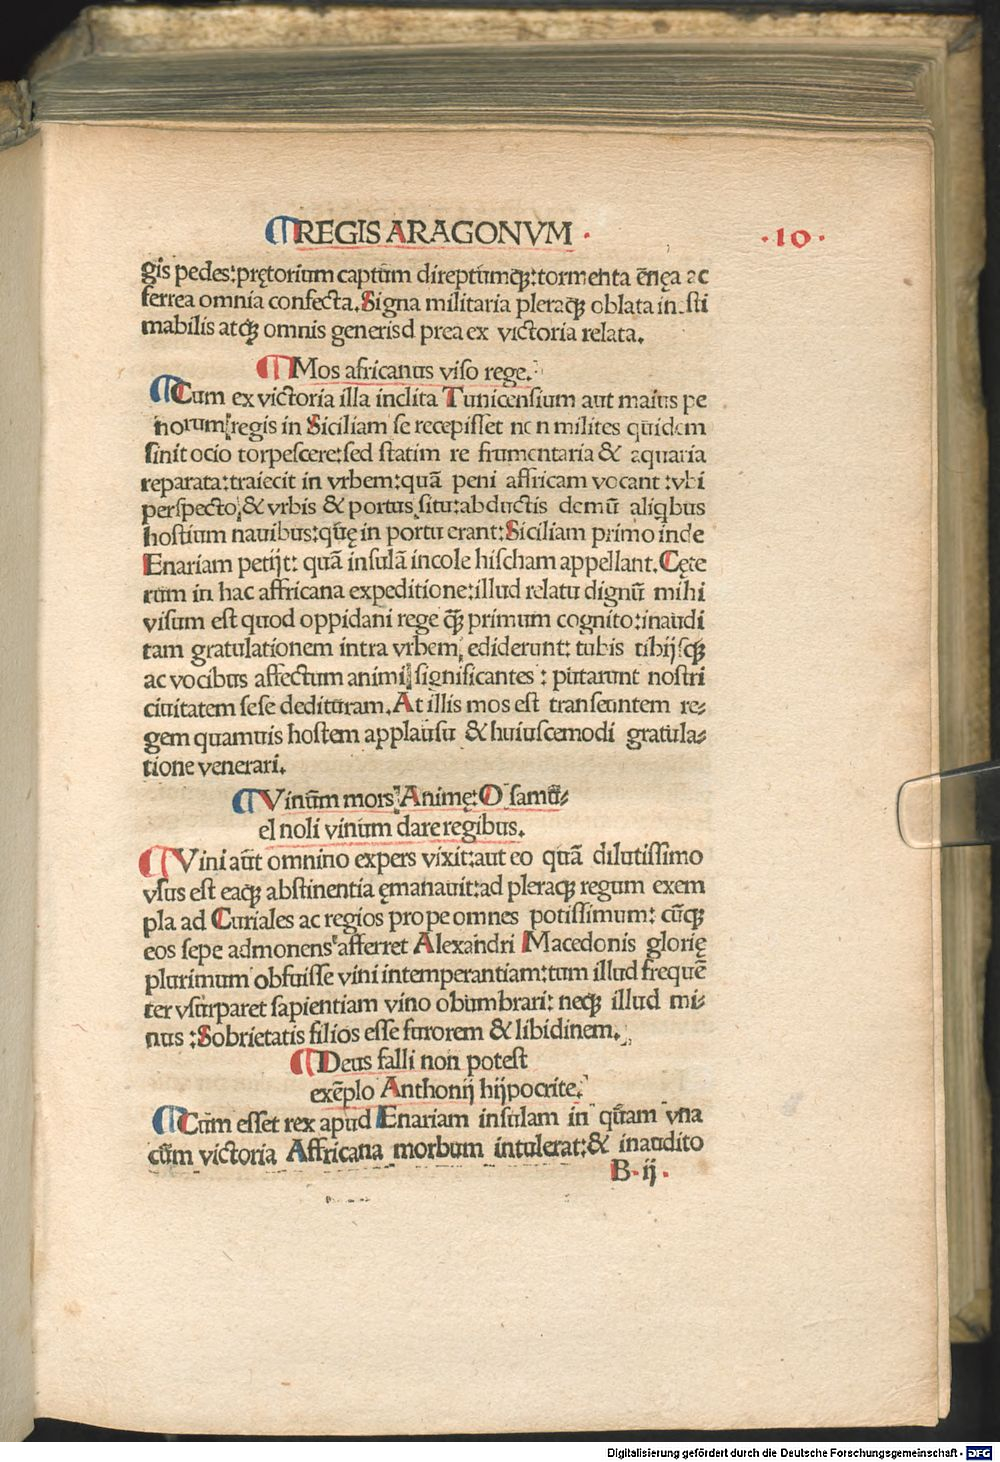 ¶REGIS ARAGONVM ·
·10·
gis pedes:prętorium captum direptumq̃:tormenta ēnęa ac
ferrea omnia confecta.Signa militaria pleraq̃ oblata inesti
mabilis atq̃ omnis generis prea ex victoria relata.
¶Mos africanus viso rege.
¶Cum ex victoria illa inclita Tunicensium aut maius pe
norum regis in Siciliam se recepisset non milites quidem
sinit ocio torpescere:sed statim re frumentaria & aquaria
reparata:traiecit in vrbem:quā peni affricam vocant:vbi
perspecto & vrbis & portus situ:abductis demū aliqbus
hostium nauibus:quę in portu erant:Siciliam primo inde
Enariam petijt: quā insulā incole hischam appellant.Cęte
rum in hac affricana expeditione:illud relatu dignū mihi
visum est quod oppidani rege q̃ primum cognito:inaudi
tam gratulationem intra vrbem ediderunt: tubis tibijsq̃
ac vocibus affectum animi significantes: putarunt nostri
ciuitatem sese dedituram.At illis mos est transeuntem re⸗
gem quamuis hostem applausu & huiuscemodi gratula⸗
tione venerari.
¶Vinum mors Animę:O samu⸗
el noli vinum dare regibus.
¶Vini aut omnino expers vixit:aut eo quā dilutissimo
vsus est eaq̃ abstinentia ęmanauit:ad pleraq̃ regum exem
pla ad Curiales ac regios prope omnes potissimum: cūq̃
eos sepe admonens afferret Alexandri Macedonis glorię
plurimum obfuisse vini intemperantiam:tum illud frequē
ter vsurparet sapientiam vino obumbrari: neq̃ illud mi⸗
nus :Sobrietatis filios esse furorem & libidinem.
¶Deus falli non potest
exēplo Anthonij hijpocrite.
¶Cum esset rex apud Enariam insulam in quam vna
cum victoria Affricana morbum intulerat:& inaudito
B·ij·
Digitalisierung gefördert durch die Deutsche Forschungsgemeinschaft - DFG